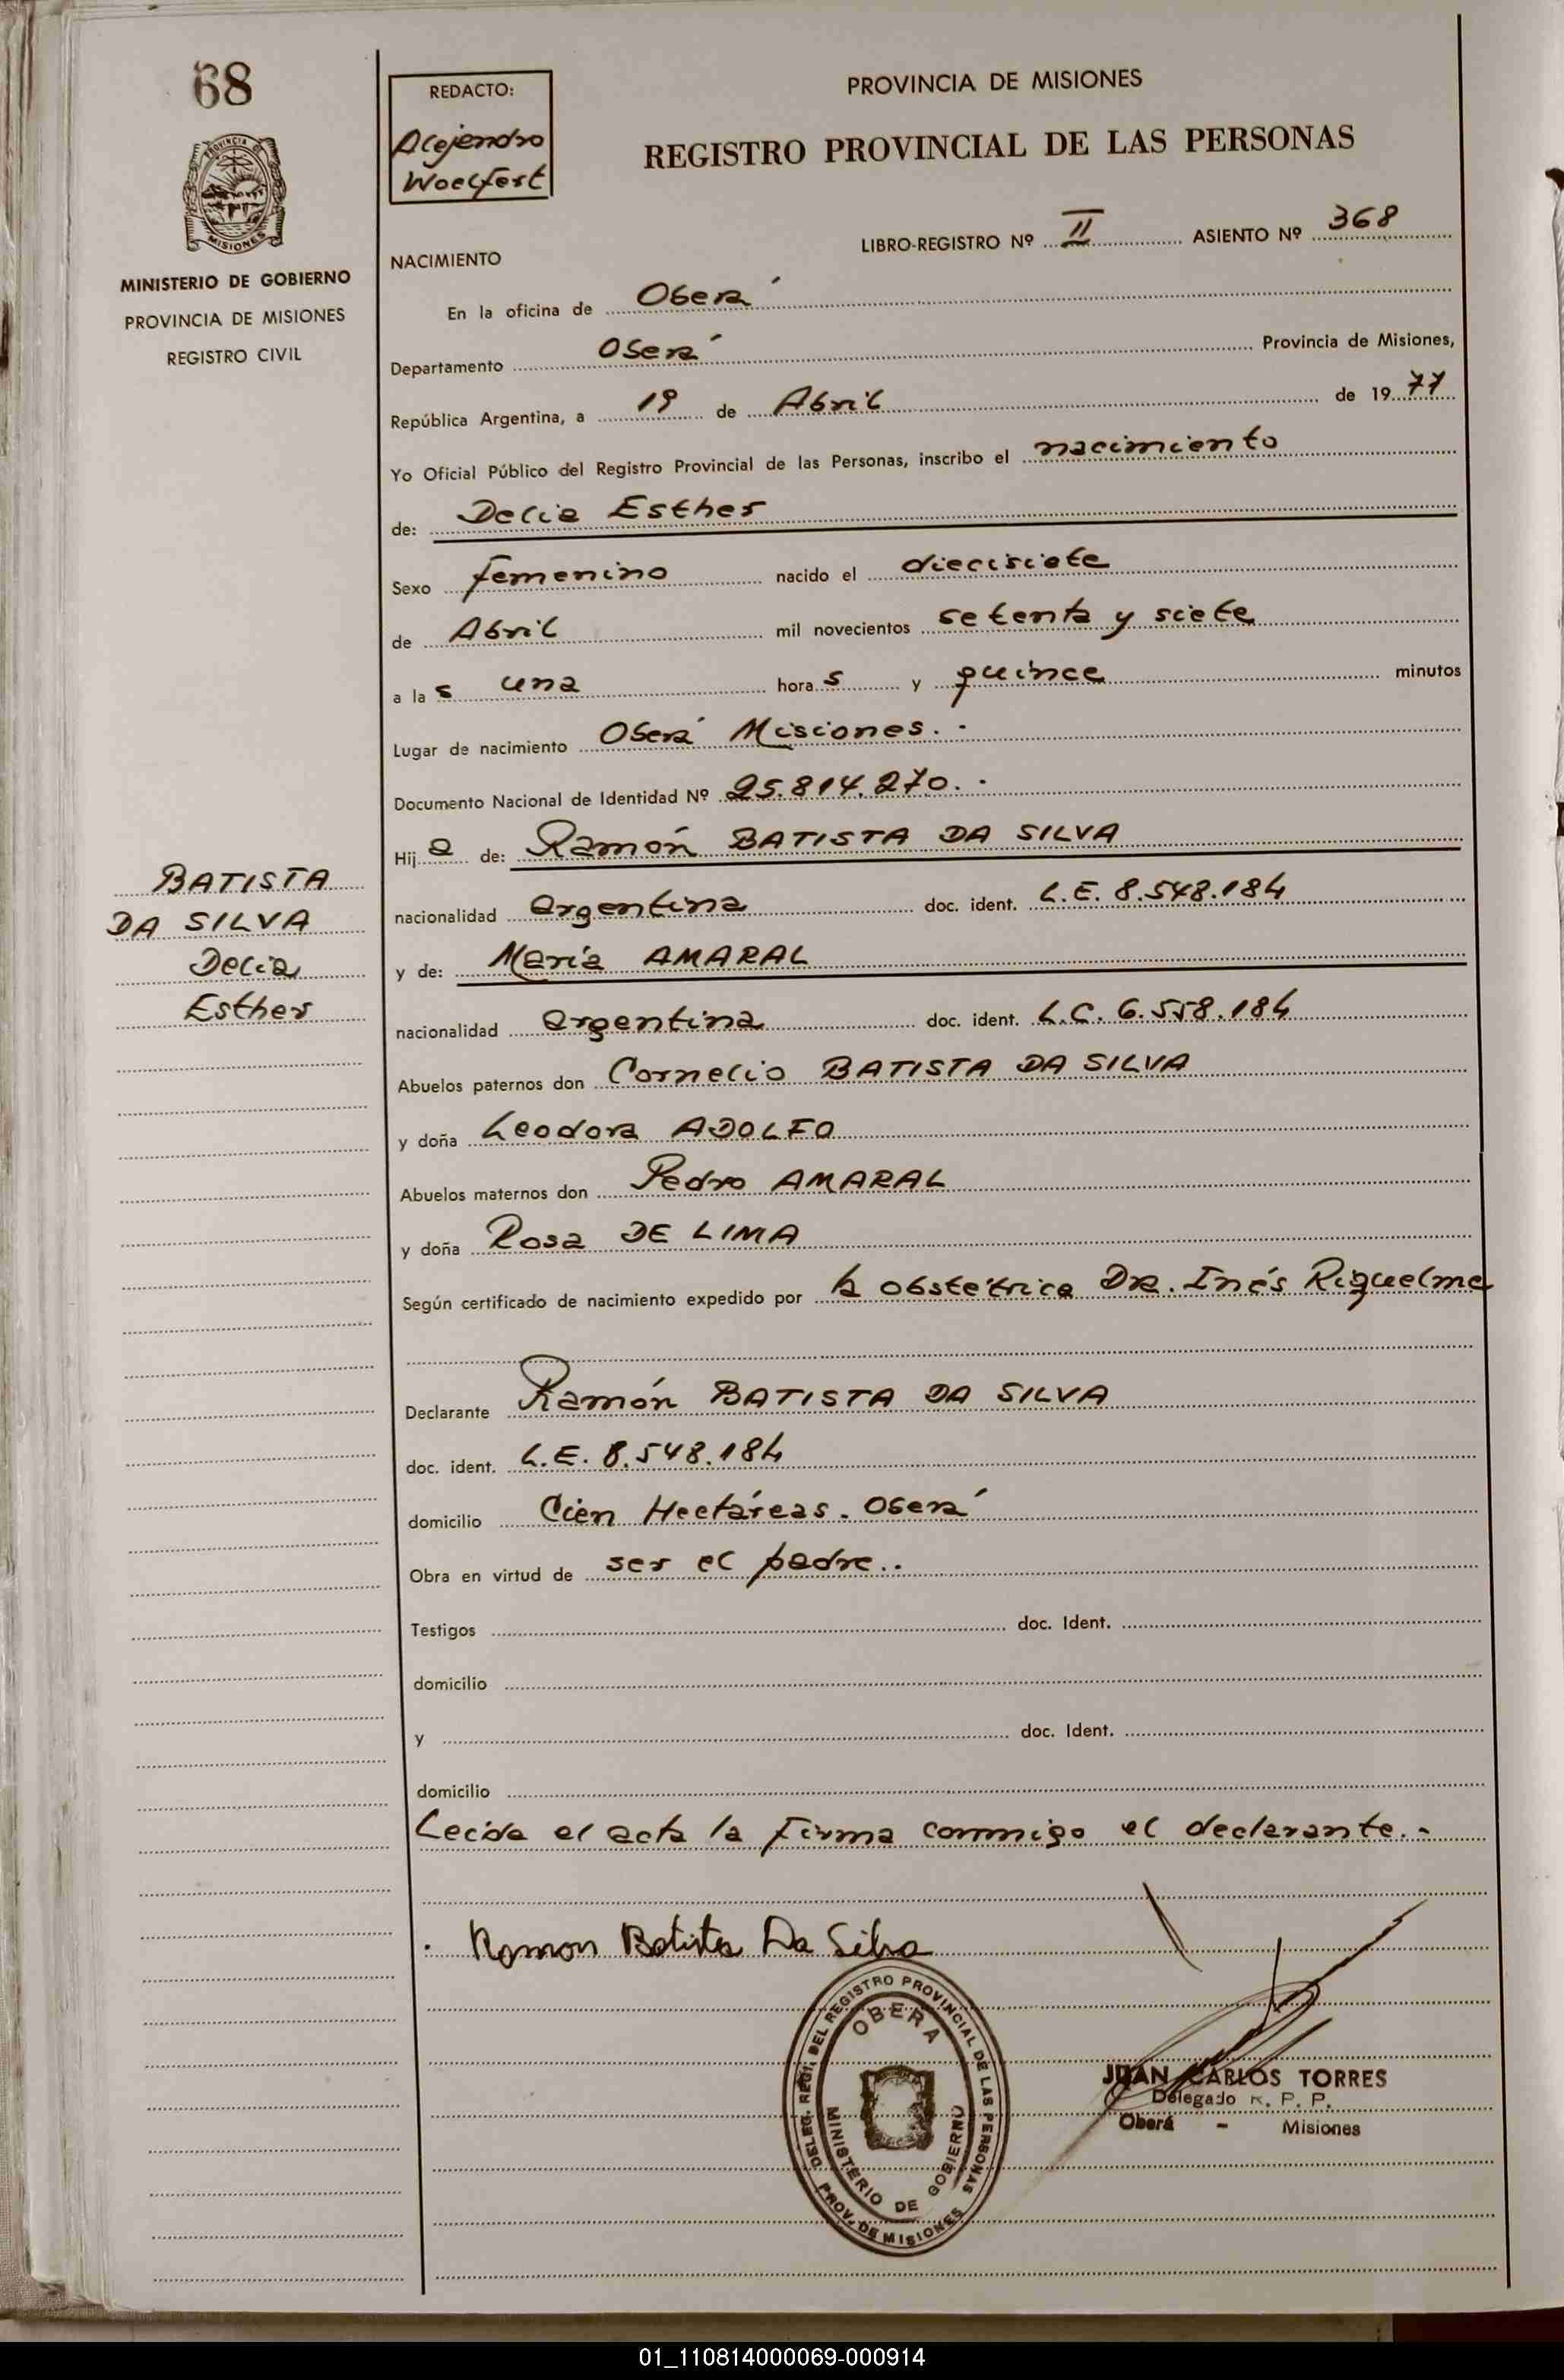 68
PROVINCIA DE
MISIONES
MINISTERIO DE GOBIERNO
PROVINCIA DE MISIONES
REGISTRO CIVIL
REDACTO:
Alejandro
Woelfert
PROVINCIA DE MISIONES
REGISTRO PROVINCIAL DE LAS PERSONAS
LIBRO-REGISTRO Nº II ASIENTO Nº 368
NACIMIENTO
En la oficina de Oberá
Departamento Oberá Provincia de Misiones,
República Argentina, a 19 de Abril de 19 77
Yo Oficial Público del Registro Provincial de las Personas, inscribo el nacimiento
de: Delia Esther
Sexo femenino nacido el diecisiete
de Abril mil novecientos setenta y siete
a la s una hora s y quince minutos
Lugar de nacimiento Oberá Misiones. -
Documento Nacional de Identidad Nº 25.814.270. -
Hij a de: Ramón BATISTA DA SILVA
nacionalidad argentina doc. ident. L.E. 8.548.184
y de: María AMARAL
nacionalidad argentina doc. ident. L.C. 6.558.184
Abuelos paternos don Cornelio BATISTA DA SILVA
y doña Leodora ADOLFO
Abuelos maternos don Pedro AMARAL
y doña Rosa DE LIMA
Según certificado de nacimiento expedido por la obstétrica Dra. Inés Riquelme
Declarante Ramón BATISTA DA SILVA
doc. ident. L.E. 8.548.184
domicilio Cien Hectáreas. Oberá
Obra en virtud de ser el padre..
Testigos doc. Ident.
domicilio
y doc. Ident.
domicilio
Leída el acta la firma conmigo el declarante. -
BATISTA
DA SILVA
Delia
Esther
Ramon Batista Da Silva
DELEG. REGI. DEL REGISTRO PROVINCIAL DE LAS PERSONAS
OBERA
MINISTERIO DE GOBIERNO
PROV. DE MISIONES
JUAN CARLOS TORRES
Delegado R. P. P.
Oberá - Misiones
01_110814000069-000914